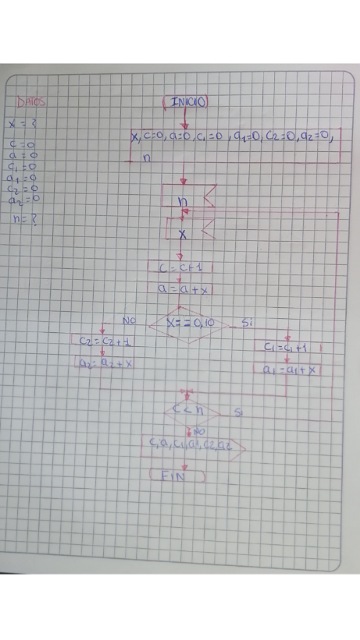 DATOS
x = ?
c = 0
a = 0
c1 = 0
a1 = 0
c2 = 0
a2 = 0
n = ?
INICIO
x, c=0, a=0, c1=0, a1=0, c2=0, a2=0,
n
n
x
c = c+1
a = a+x
x==0,10
NO
Si
c2 = c2+1
a2 = a2+x
c1 = c1+1
a1 = a1+x
c < n
Si
NO
c, a, c1, a1, c2, a2
FIN